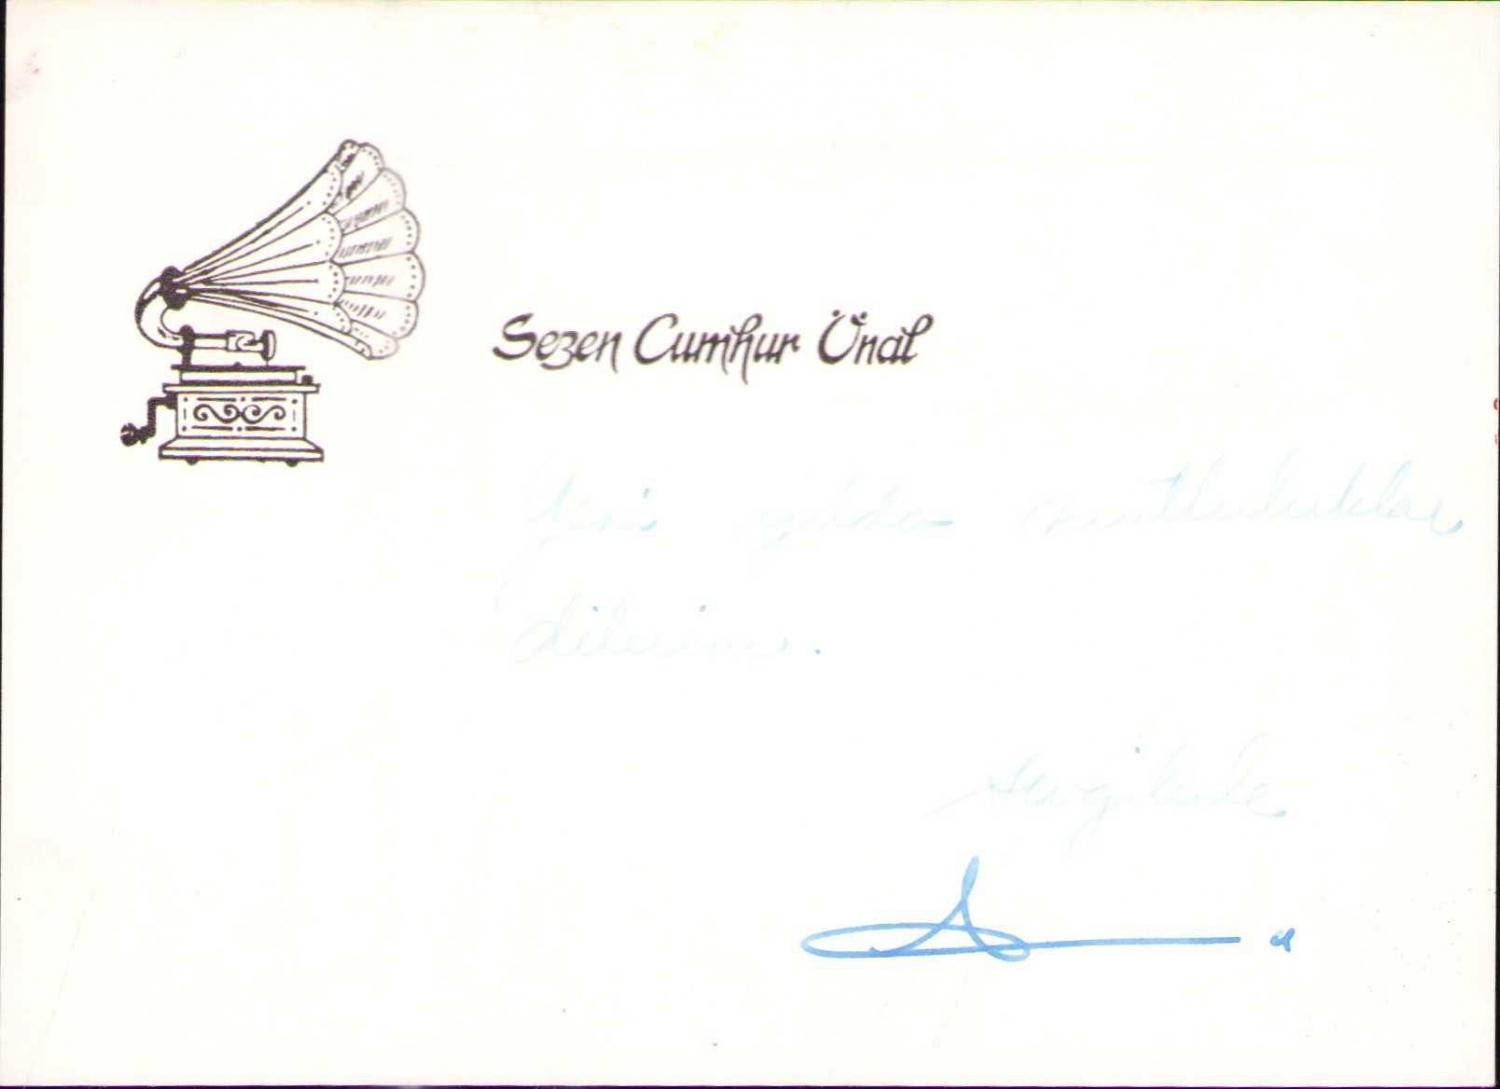 Sezen Cumhur Ünal
Yeni yılda mutluluklar
dilerim.
Sevgilerle